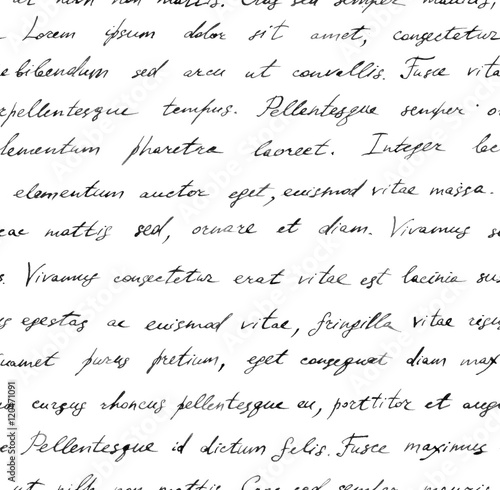 ut nibh non mattis. Cras sed semper mauris,
Lorem ipsum dolor sit amet, consectetur
bibendum sed arcu ut convallis. Fusce vita
pellentesque tempus. Pellentesque semper o
lementum pharetra laoreet. Integer lac
elementum auctor eget, euismod vitae massa.
cac mattis sed, ornare et diam. Vivamus s
s. Vivamus consectetur erat vitae est lacinia sus
us egestas ac euismod vitae, fringilla vitae risus
uamet purus pretium, eget consequat diam max
cursus rhoncus pellentesque eu, porttitor et augu
e Pellentesque id dictum felis. Fusce maximus
ut nibh non mattis. Cras sed semper mauris
Adobe Stock
120471091